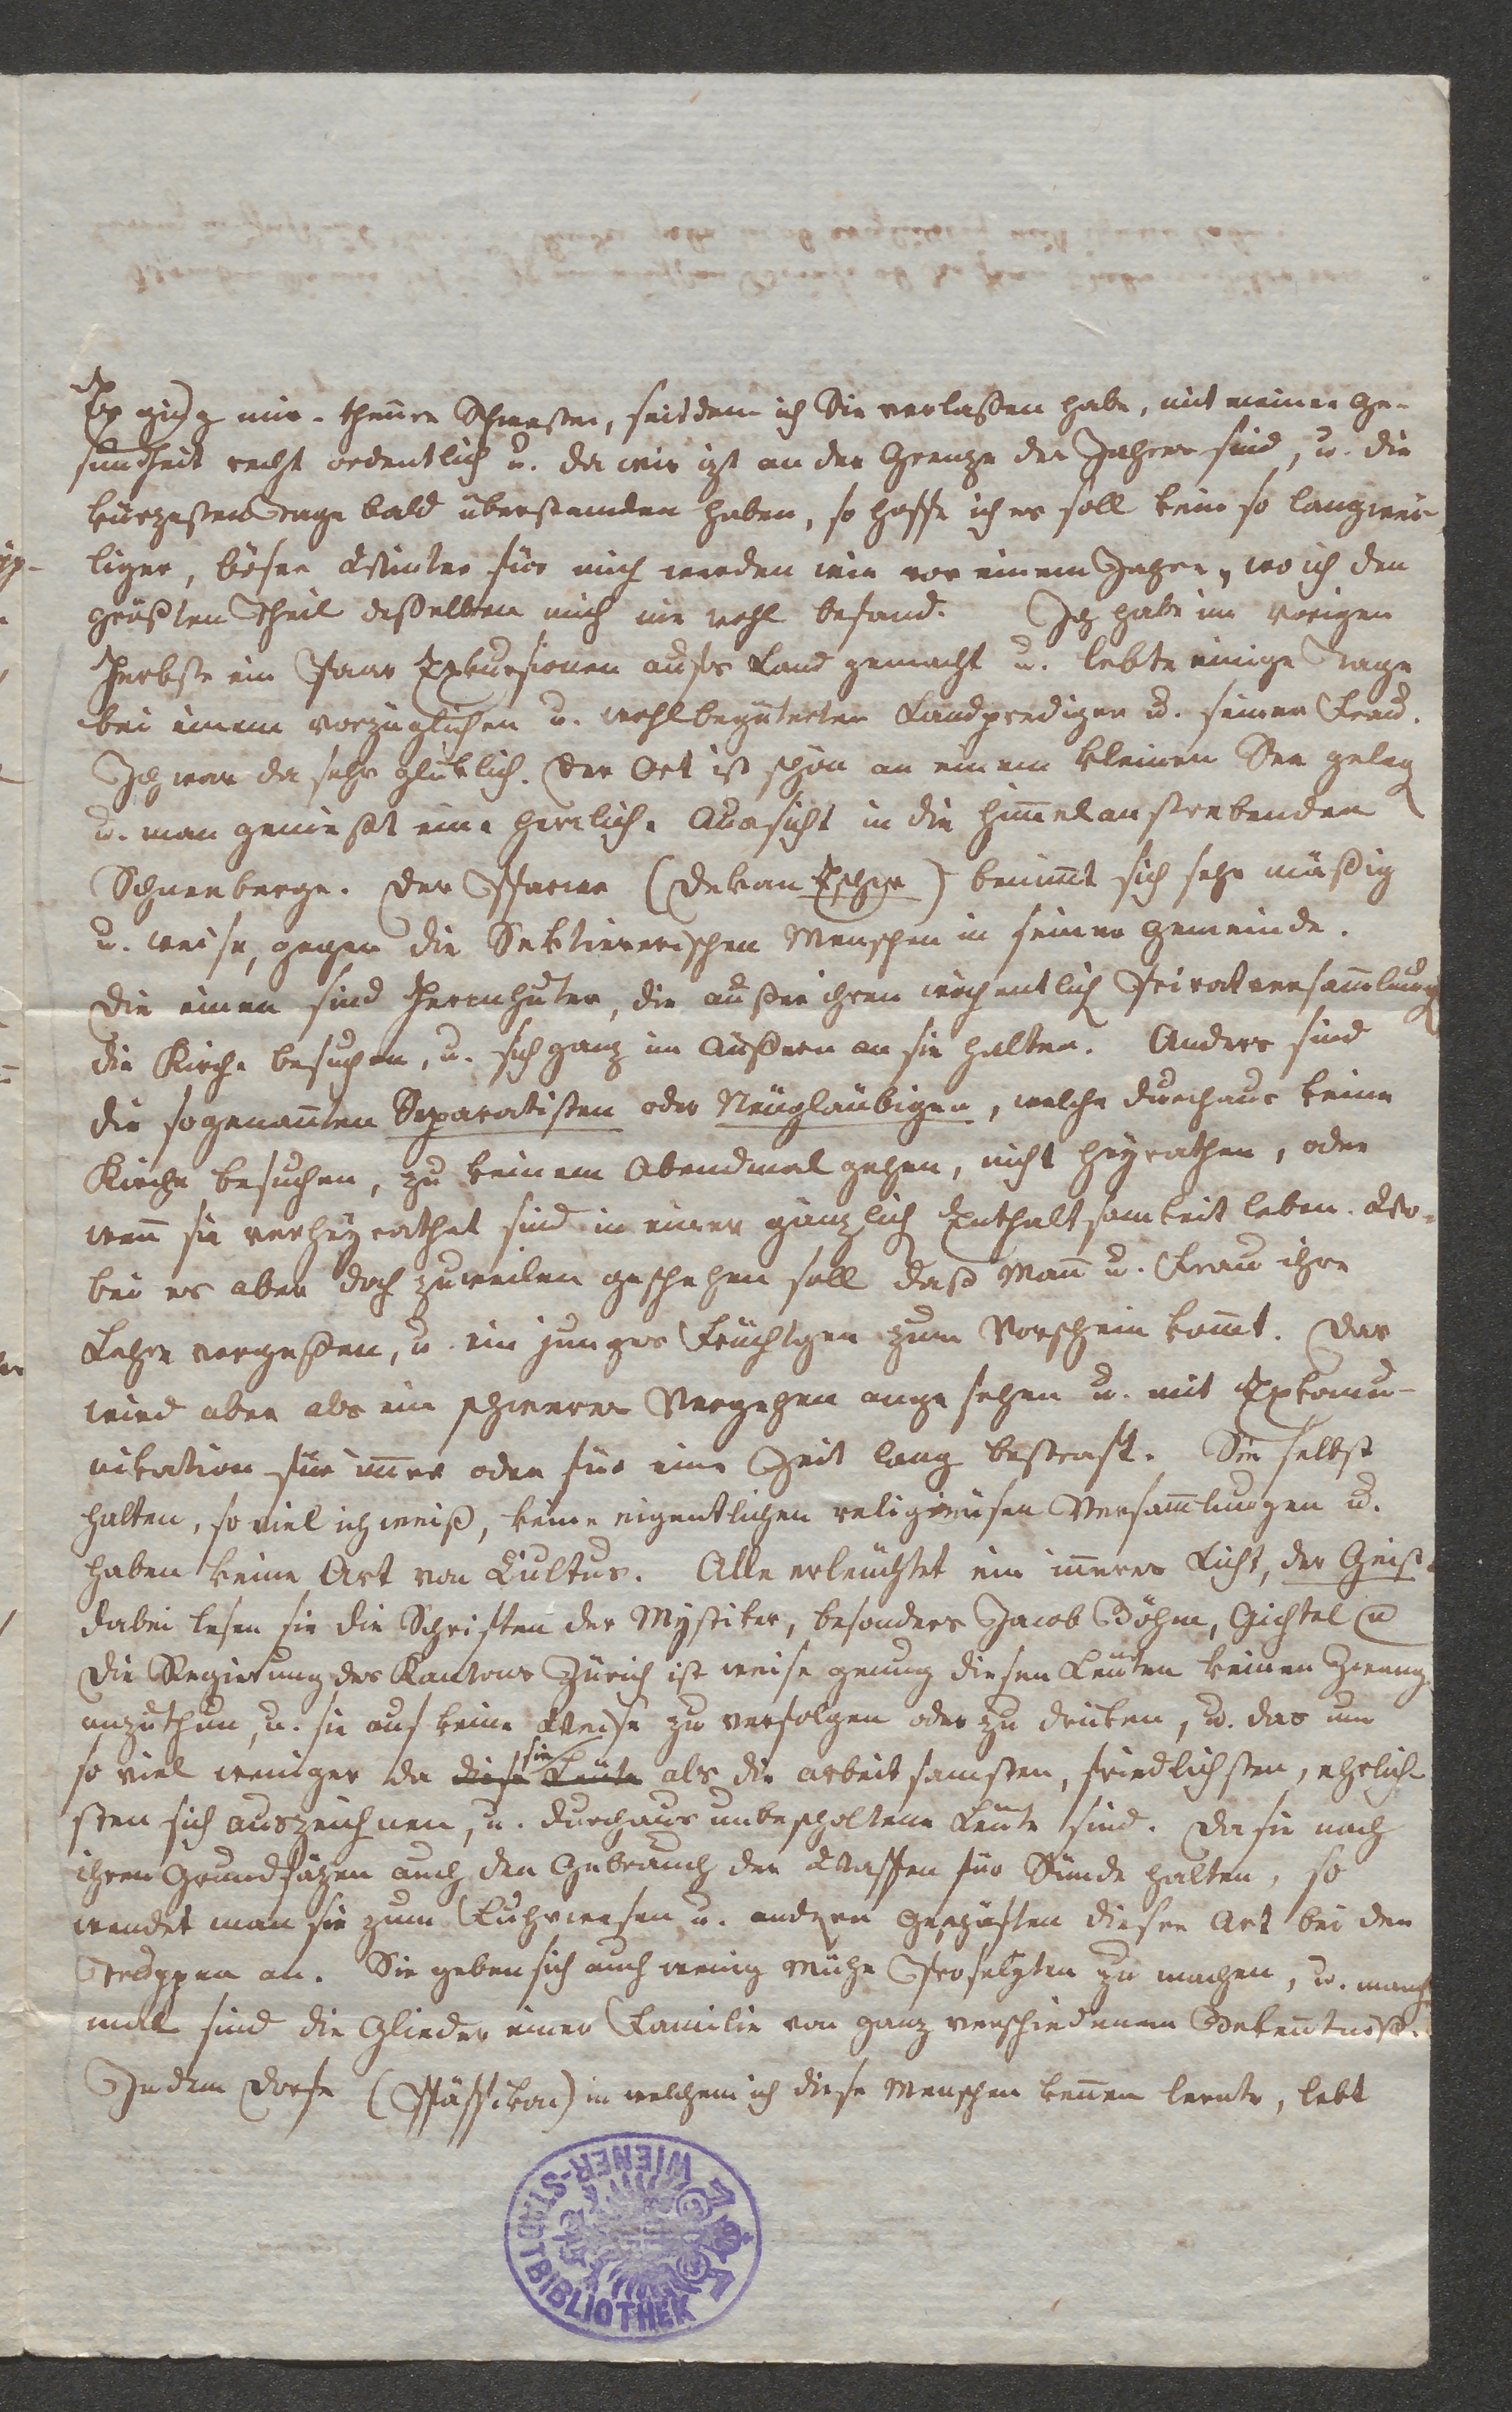 Es ging mir, theure Schwester, seitdem ich Sie verlaßen habe, mit meiner Ge-
sundheit recht ordentlich u. da wir izt an der Grenze des Jahres sind, u. die
kürzesten Tage bald überstanden haben, so hoffe ich es soll kein so langwie-
liger, böser Winter für mich werden wie vor einem Jahre, wo ich den
größten Theil deßelben mich nie wohl befand. Ich habe im vorigen
Herbste ein Paar Exkursionen aufs Land gemacht u. lebte einige Tage
bei einem vorzüglichen u. wohlbegüterten Landprediger u. seiner Frau.
Ich war da sehr glüklich. Der Ort ist schön an einem kleinen See geleg
u. man genießt eine herrliche Aussicht in die him̄elanstrebenden
Schneeberge. Der Pfarrer (Dekan Escher) benim̄t sich sehr mäßig
u. weise, gegen die Sektiererischen Menschen in seiner Gemeinde.
Die einen sind Herrnhuter, die außer ihren wöchentlich Privatversam̄lung
die Kirche besuchen, u. sich ganz im Äußern an sie halten. Andere sind
die sogenan̄ten Separatisten oder Neügläubigen, welche durchaus keine
Kirche besuchen, zu keinem Abendmal gehen, nicht heyrathen, oder
wen̄ sie verheyrathet sind in einer gänzlich Enthaltsamkeit leben. Wo-
bei es aber doch zuweilen geschehen soll daß Man̄ u. Frau ihre
Lehre vergeßen, u. ein junges Früchtgen zum Vorschein kom̄t. Das
wird aber als ein schweres Vergehen angesehen u. mit Exkomu-
nikation für im̄er oder für eine Zeit lang bestraft. Sie selbst
halten, so viel ich weiß, keine eigentlichen religieusen Versam̄lungen u.
haben keine Art von Cultus. Alle erleuchtet ein in̄eres Licht, der Geist.
dabei lesen sie die Schriften der Mystiker, besonders Jacob Böhm, Gichtel u
Die Regierung des Kantons Zürich ist weise genug diesen Leüten keinen Zwang
anzuthun, u. sie auf keine Weise zu verfolgen oder zu drüken, u. das um
so viel weniger da diese Leüte sie als die arbeitsamsten, friedlichsten, ehrlich-
sten sich auszeichnen, u. durchaus unbescholtene Leüte sind. Da sie nach
ihren Grundsäzen auch den Gebrauch der Waffen für Sünde halten, so
wendet man sie zum Fuhrwesen u. andern Geschäften dieser Art bei den
Truppen an. Sie geben sich auch wenig Mühe Proselyten zu machen, u. manch
mal sind die Glieder einer Familie von ganz verschiedenem Beken̄tniß.
In dem Dorfe (Pfäffikon) in welchem ich diese Menschen ken̄en lernte, lebt
WIENER-STADTBIBLIOTHEK